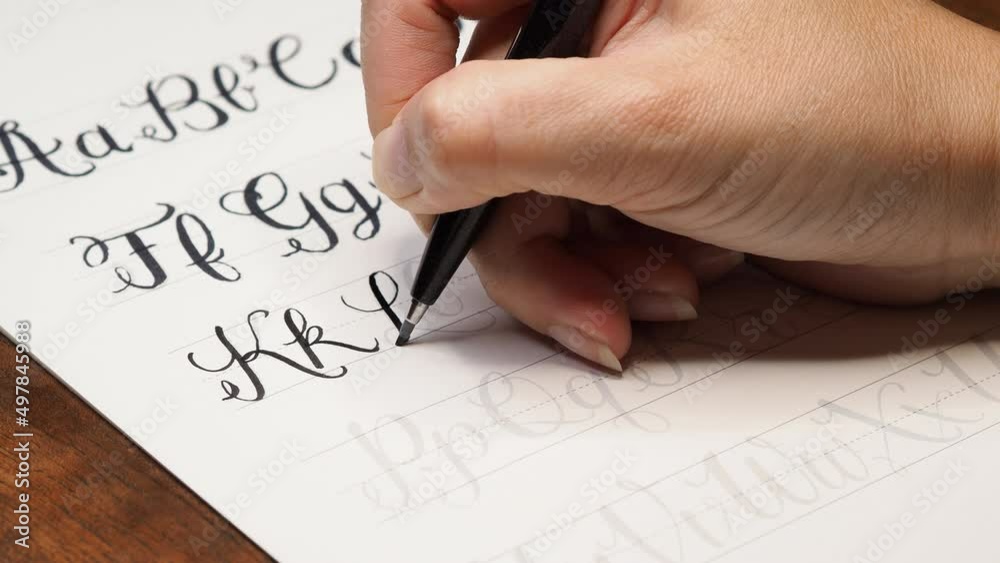 Aa Bb C
Ff Gg
Kk L
Pp Qq
Vv Ww Xx
Adobe Stock | #497845988